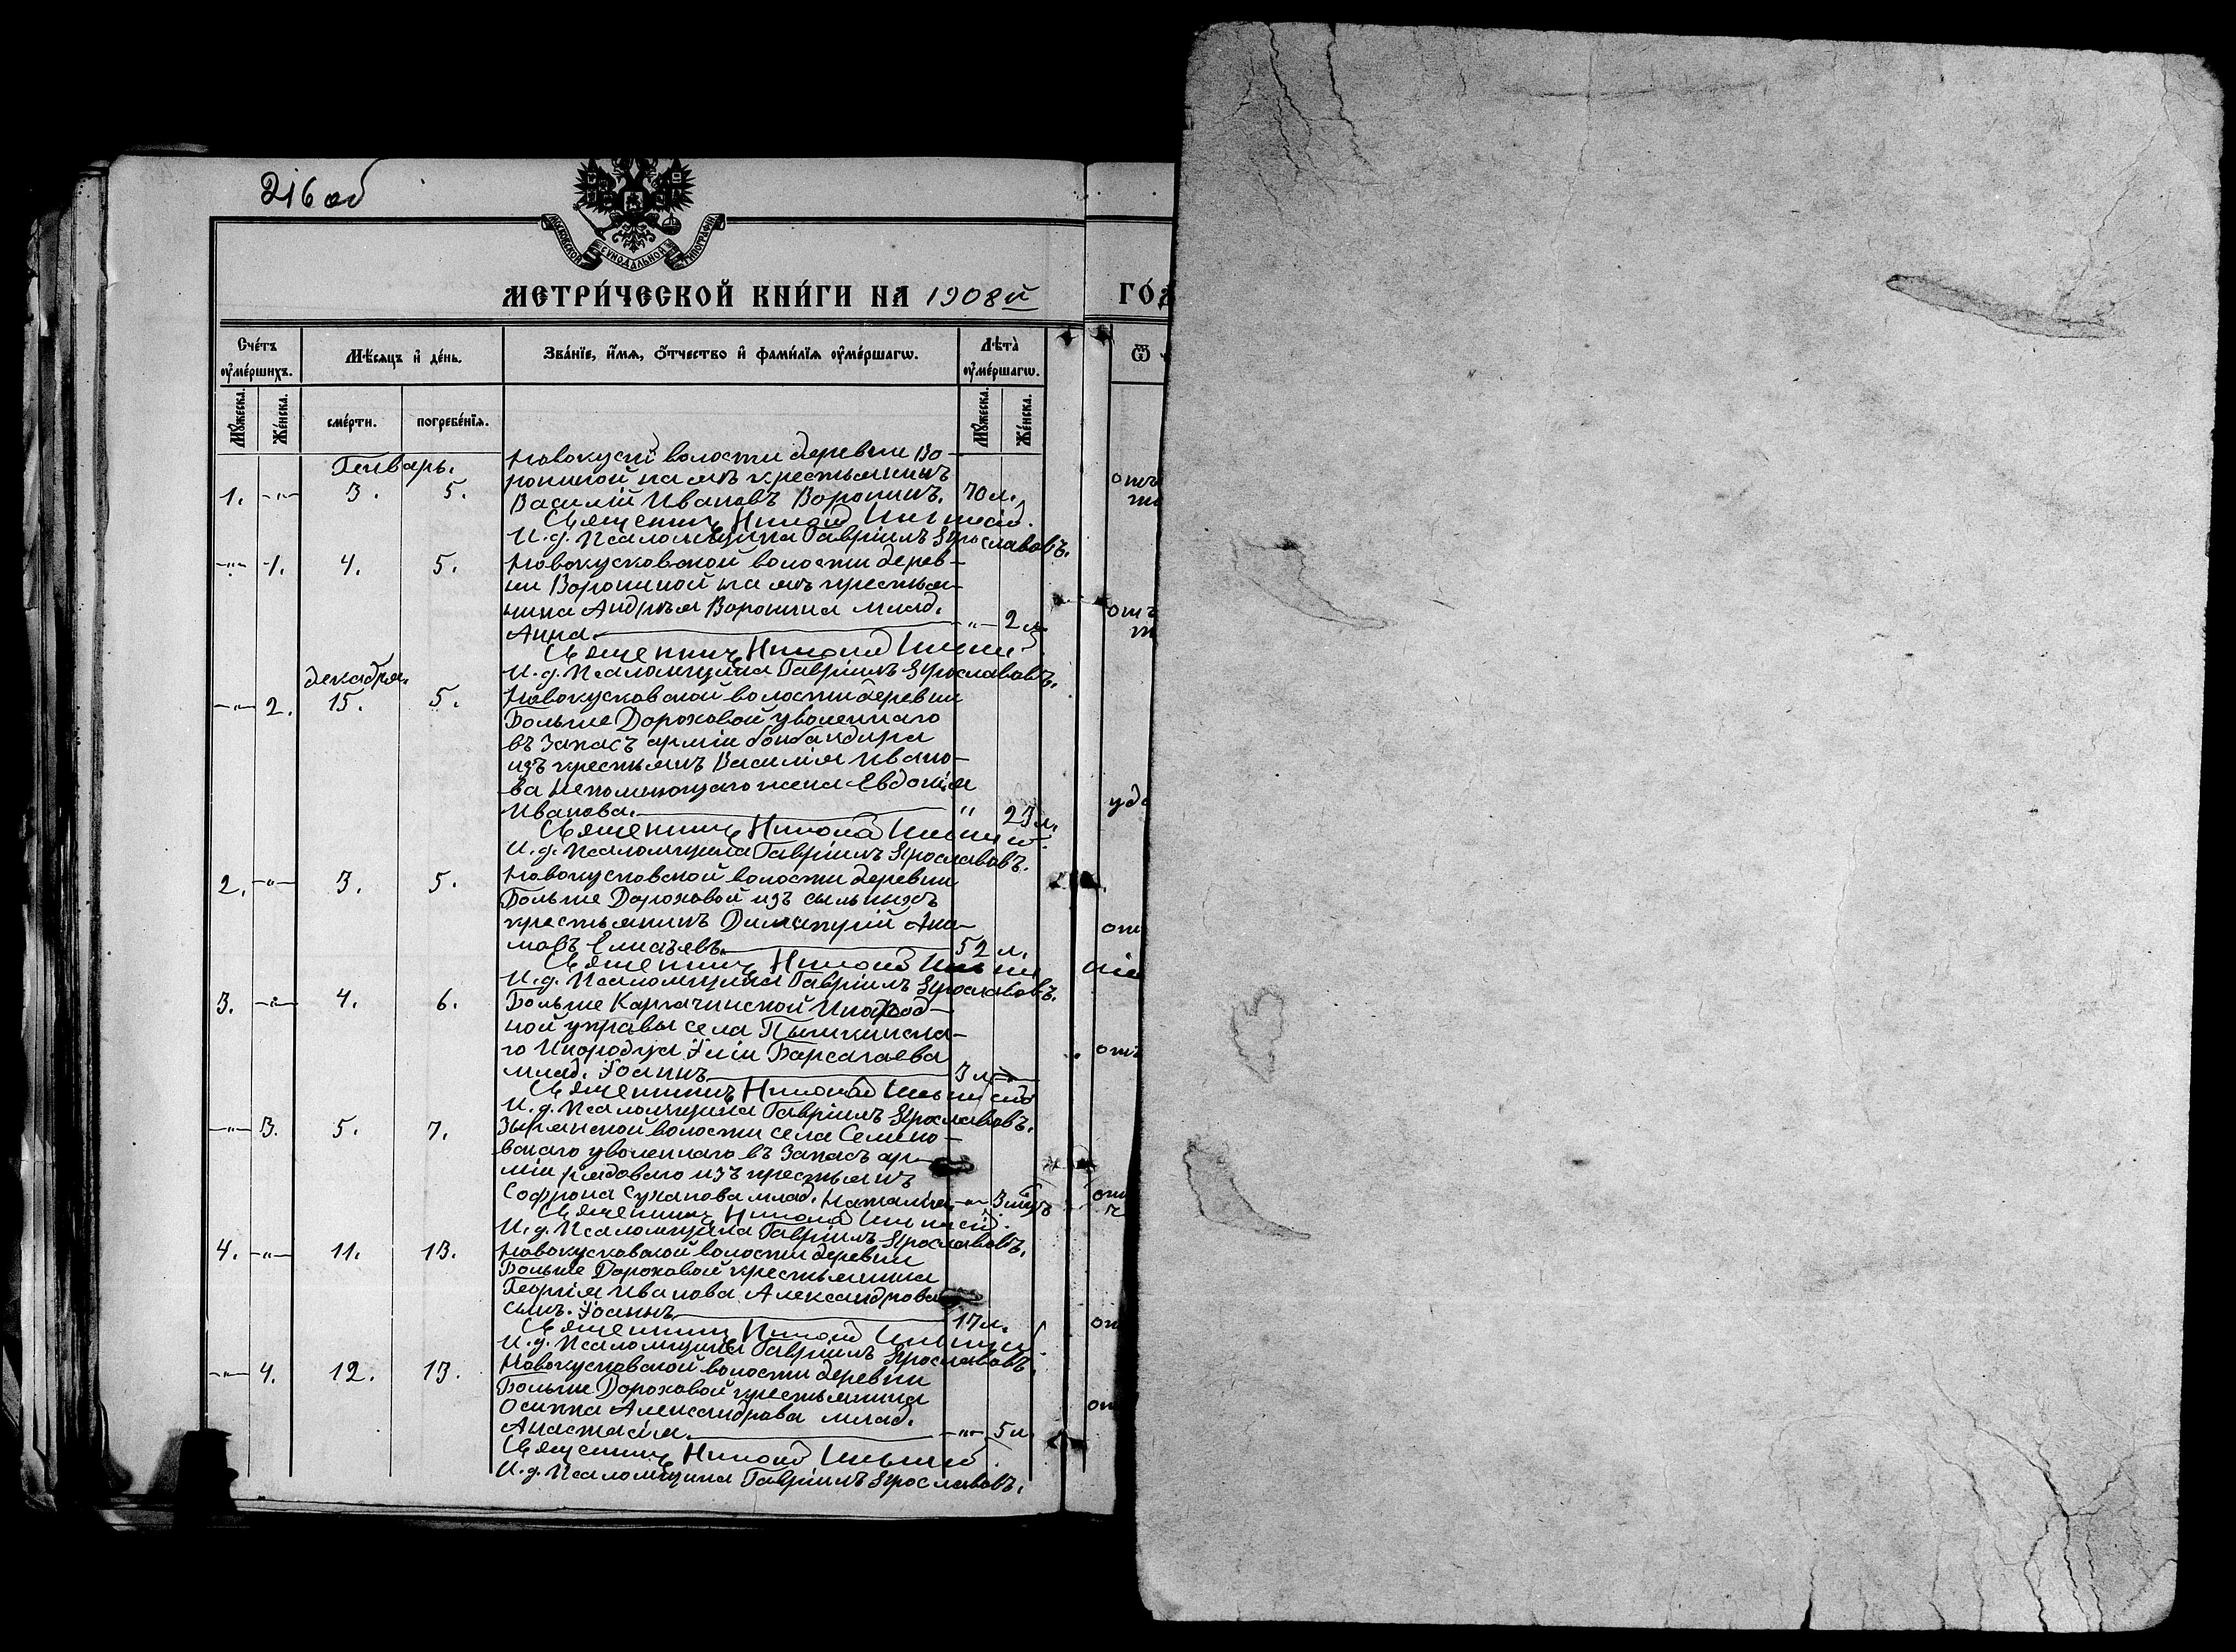 216 об
МОСКОВСКОЙ СѴНОДАЛЬНОЙ ТИПОГРАФІИ
МЕТРИ́ЧЕСКОЙ КНИ́ГИ НА 1908й
Сче́тъ ᲂу҆ме́ршихъ.
Мѣ́сяцъ и҆ де́нь.
Зва́нїе, и҆́мѧ, ѻ҆́тчество и҆ фами́лїѧ ᲂу҆ме́ршагѡ.
Лѣта̀ ᲂу҆ме́ршагѡ.
Мꙋ́жеска. Же́нска. сме́рти. погребе́нїѧ. Мꙋ́жеска. Же́нска.
Генварь.
Новокуск волости деревни Во-
рониной
крестьянинъ
1. -"- 3. 5. Василій Ивановъ Воронинъ. 70 л.
Священникъ Николай
И. д. Псаломщика Гавріилъ Ярославовъ.
-"- 1. 4. 5. Новокусковской волости дерев-
ни Ворониной крестья-
нина Андрея Воронина млад.
Анна. -"- 2 л.
Священникъ Николай
И. д. Псаломщика Гавріилъ Ярославовъ.
декабря.
-"- 2. 15. 5. Новокусковской волости деревни
Больше Дороховой уволеннаго
въ запасъ арміи бомбандира
изъ крестьянъ Василія Ивано-
ва Непомнющаго жена Евдокія
Иванова. " 23 л.
Священникъ Николай
И. д. Псаломщика Гавріилъ Ярославовъ.
2. -"- 3. 5. Новокусковской волости деревни
Больше Дороховой изъ сыльныхъ
крестьянинъ Димитрій Аки-
мовъ Елисѣевъ. 52 л.
Священникъ Николай
И. д. Псаломщика Гавріилъ Ярославовъ.
3. -"- 4. 6. Больше Каргачинской Инород-
ной управы села Пышкинска-
го Инородца Іліи Барсагаева
млад. Іоаннъ 3 л. -"-
Священникъ Николай
И. д. Псаломщика Гавріилъ Ярославовъ.
-"- 3. 5. 7. Зырянской волости села Семено-
вскаго уволеннаго въ запасъ ар-
міи рядоваго изъ крестьянъ
Софрона Суханова млад. Наталія -"-
Священникъ Николай
И. д. Псаломщика Гавріилъ Ярославовъ.
4. -"- 11. 13. Новокусковской волости деревни
Больше Дороховой крестьянина
Георгія Иванова Александрова
сынъ. Іоаннъ 17 л.
Священникъ Николай
И. д. Псаломщика Гавріилъ Ярославовъ.
-"- 4. 12. 13. Новокусковской волости деревни
Больше Дороховой крестьянина
Осипа Александрова млад.
Анастасія. -"- 5 л.
Священникъ Николай
И. д. Псаломщика Гавріилъ Ярославовъ.